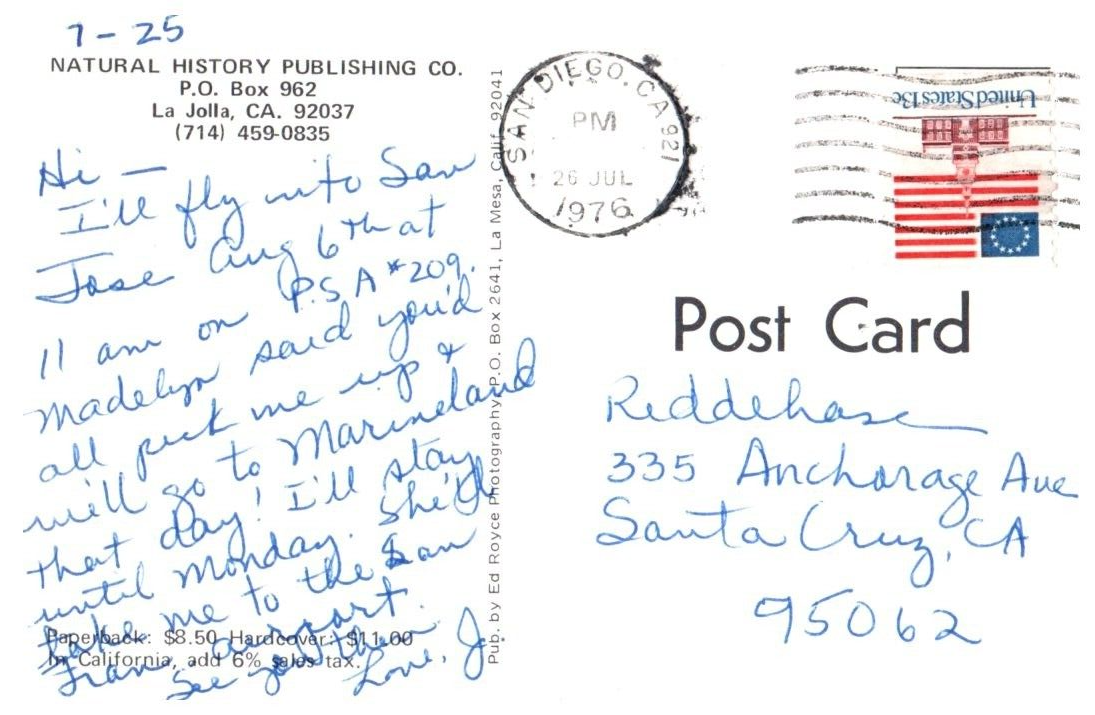 7-25
NATURAL HISTORY PUBLISHING CO.
P.O. Box 962
La Jolla, CA. 92037
(714) 459-0835
Hi —
I'll fly into San
Jose Aug 6th at
11 am on P.S A #209.
Madelyn said you'd
all pick me up &
we'll go to Marineland
that day! I'll stay
until Monday. She'll
take me to the San
Fran airport.
See you then
Love, J
Paperback: $8.50 Hardcover: $11.00
In California, add 6% sales tax.
Pub. by Ed Royce Photography, P.O. Box 2641, La Mesa, Calif. 92041
SAN DIEGO, CA 921
PM
26 JUL
1976
United States 13c
Post Card
Reddehase
335 Anchorage Ave
Santa Cruz, CA
95062